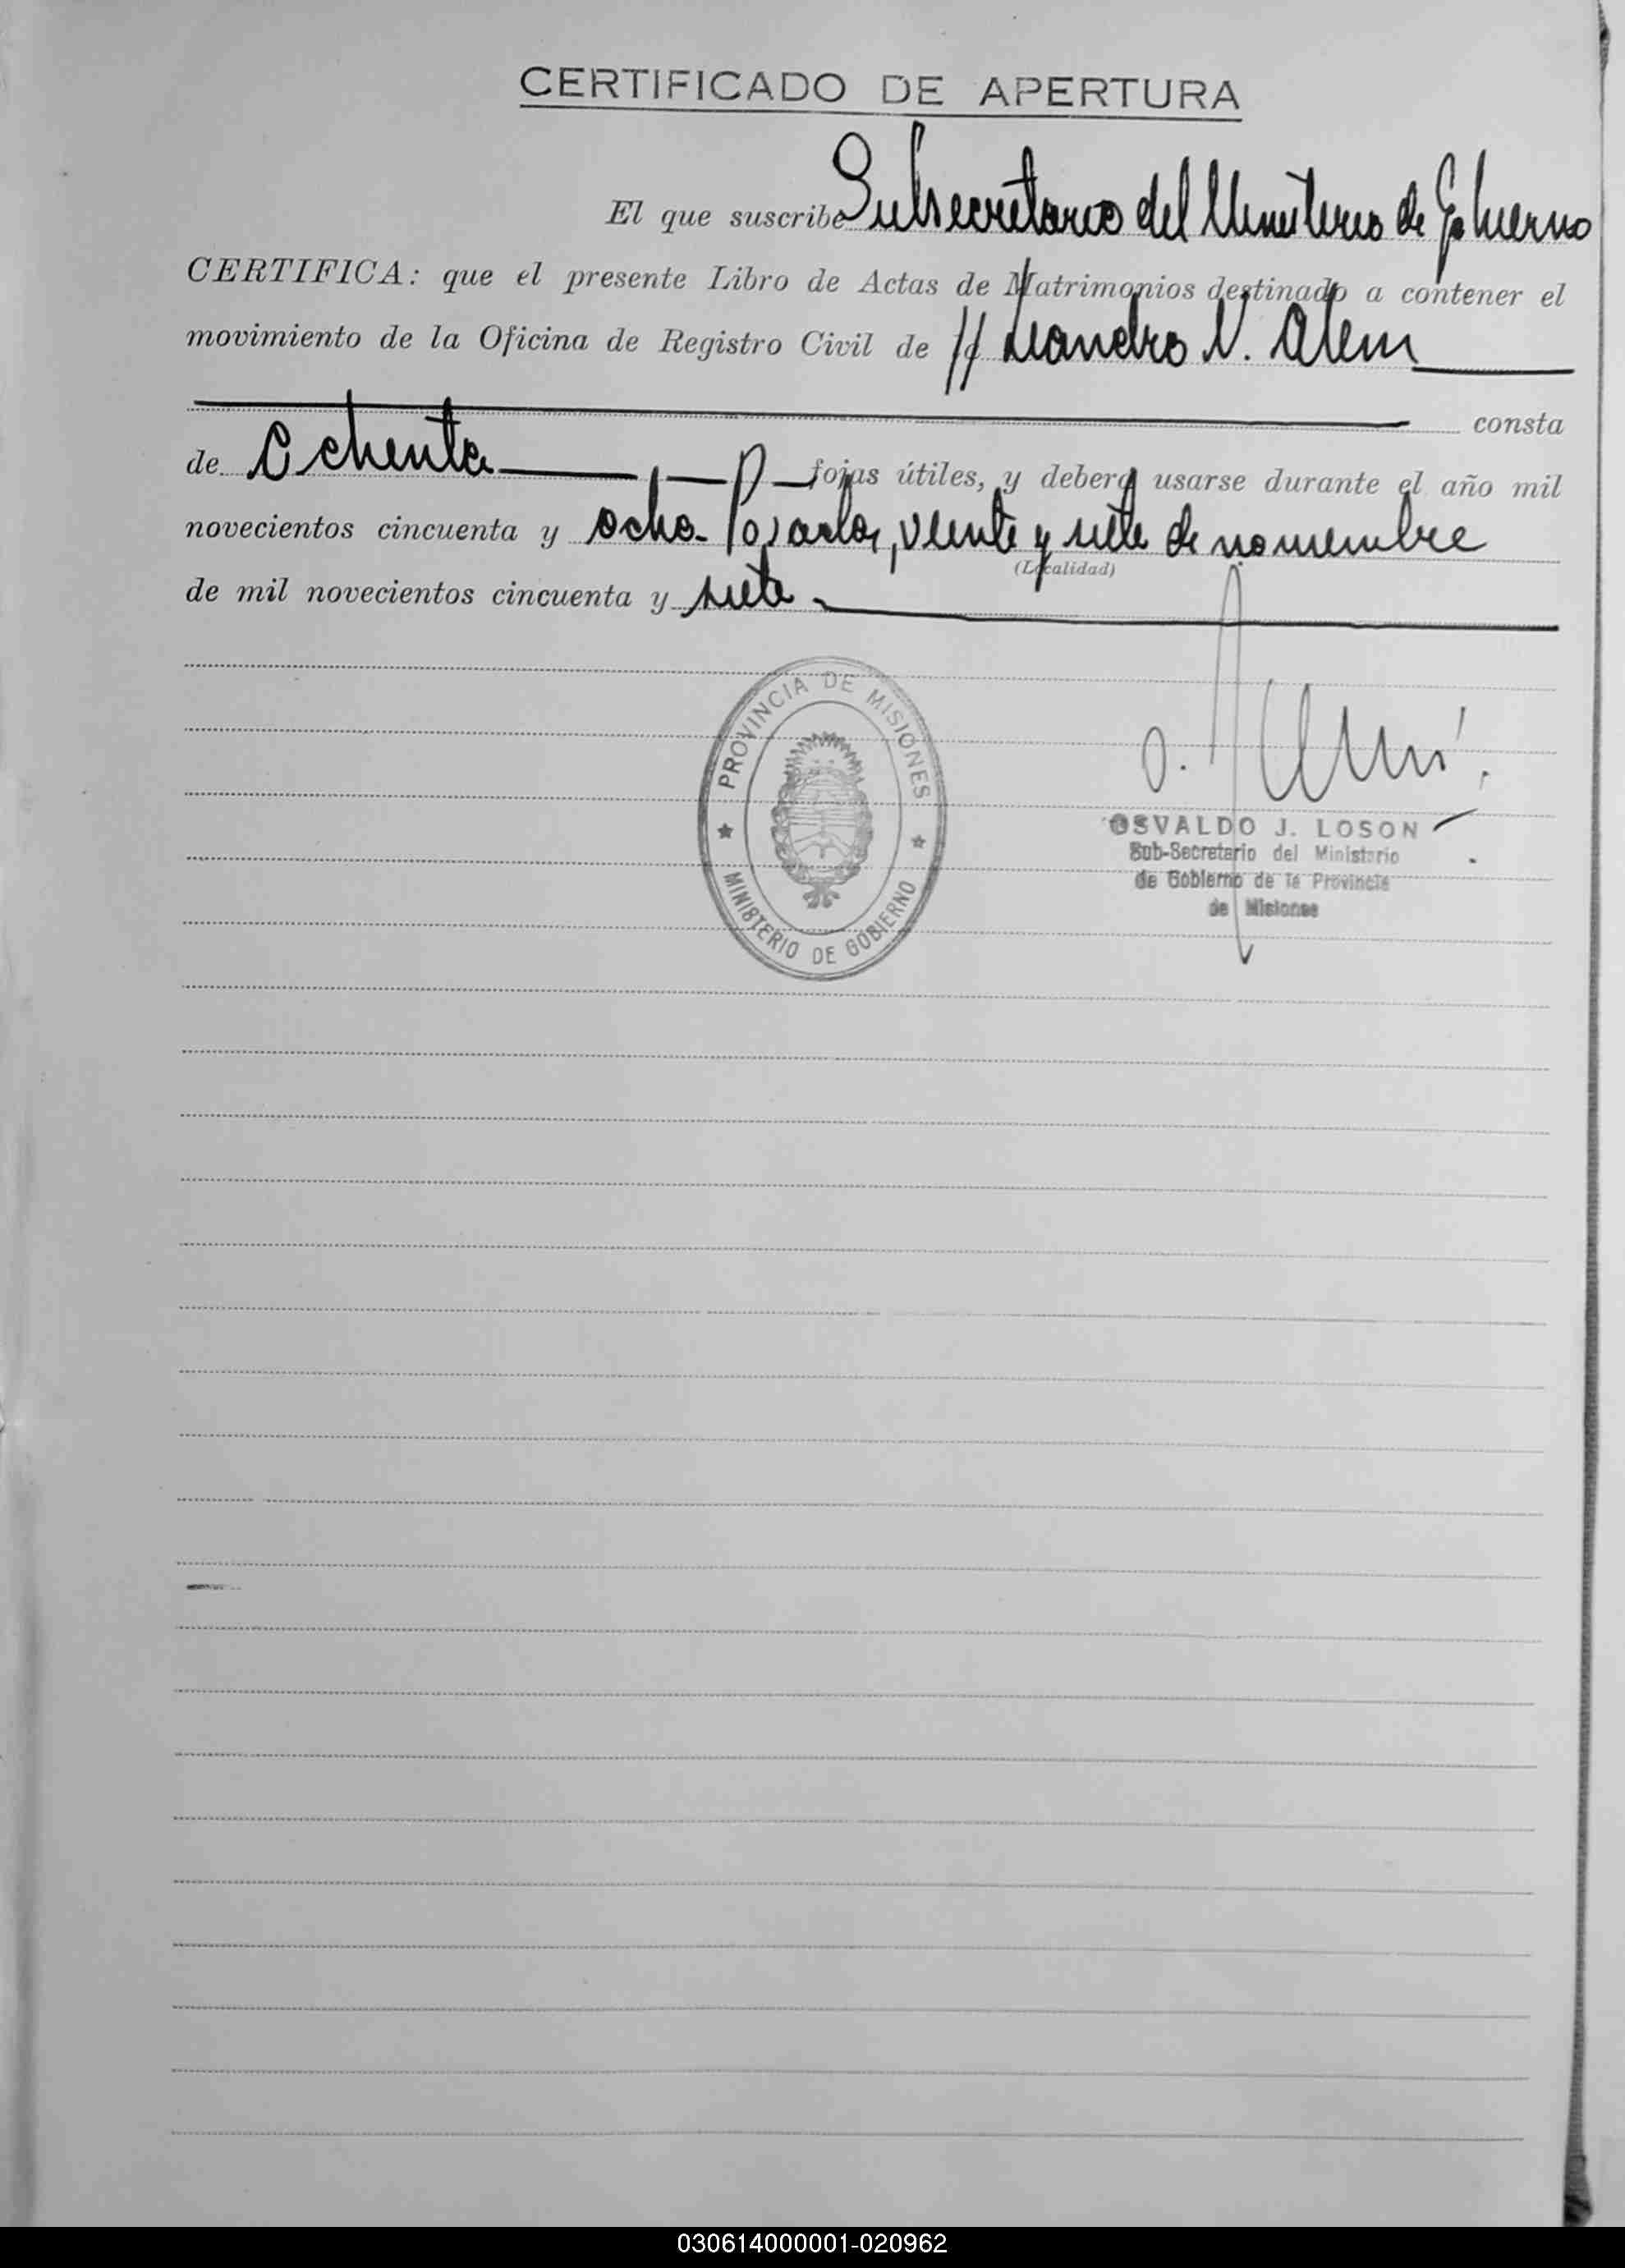 CERTIFICADO DE APERTURA
El que suscribe Subsecretario del Ministerio de Gobierno
CERTIFICA: que el presente Libro de Actas de Matrimonios destinado a contener el
movimiento de la Oficina de Registro Civil de // Leandro N. Alem
consta
de Ochenta fojas útiles, y deberá usarse durante el año mil
novecientos cincuenta y ocho- Posadas, veinte y siete de noviembre
(Localidad)
de mil novecientos cincuenta y siete.
PROVINCIA DE MISIONES
MINISTERIO DE GOBIERNO
OSVALDO J. LOSON
Sub-Secretario del Ministerio
de Gobierno de la Provincia
de Misiones
030614000001-020962